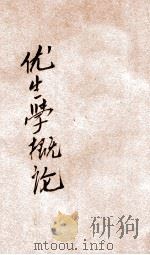 优生学概论
研狗
mtoou.info